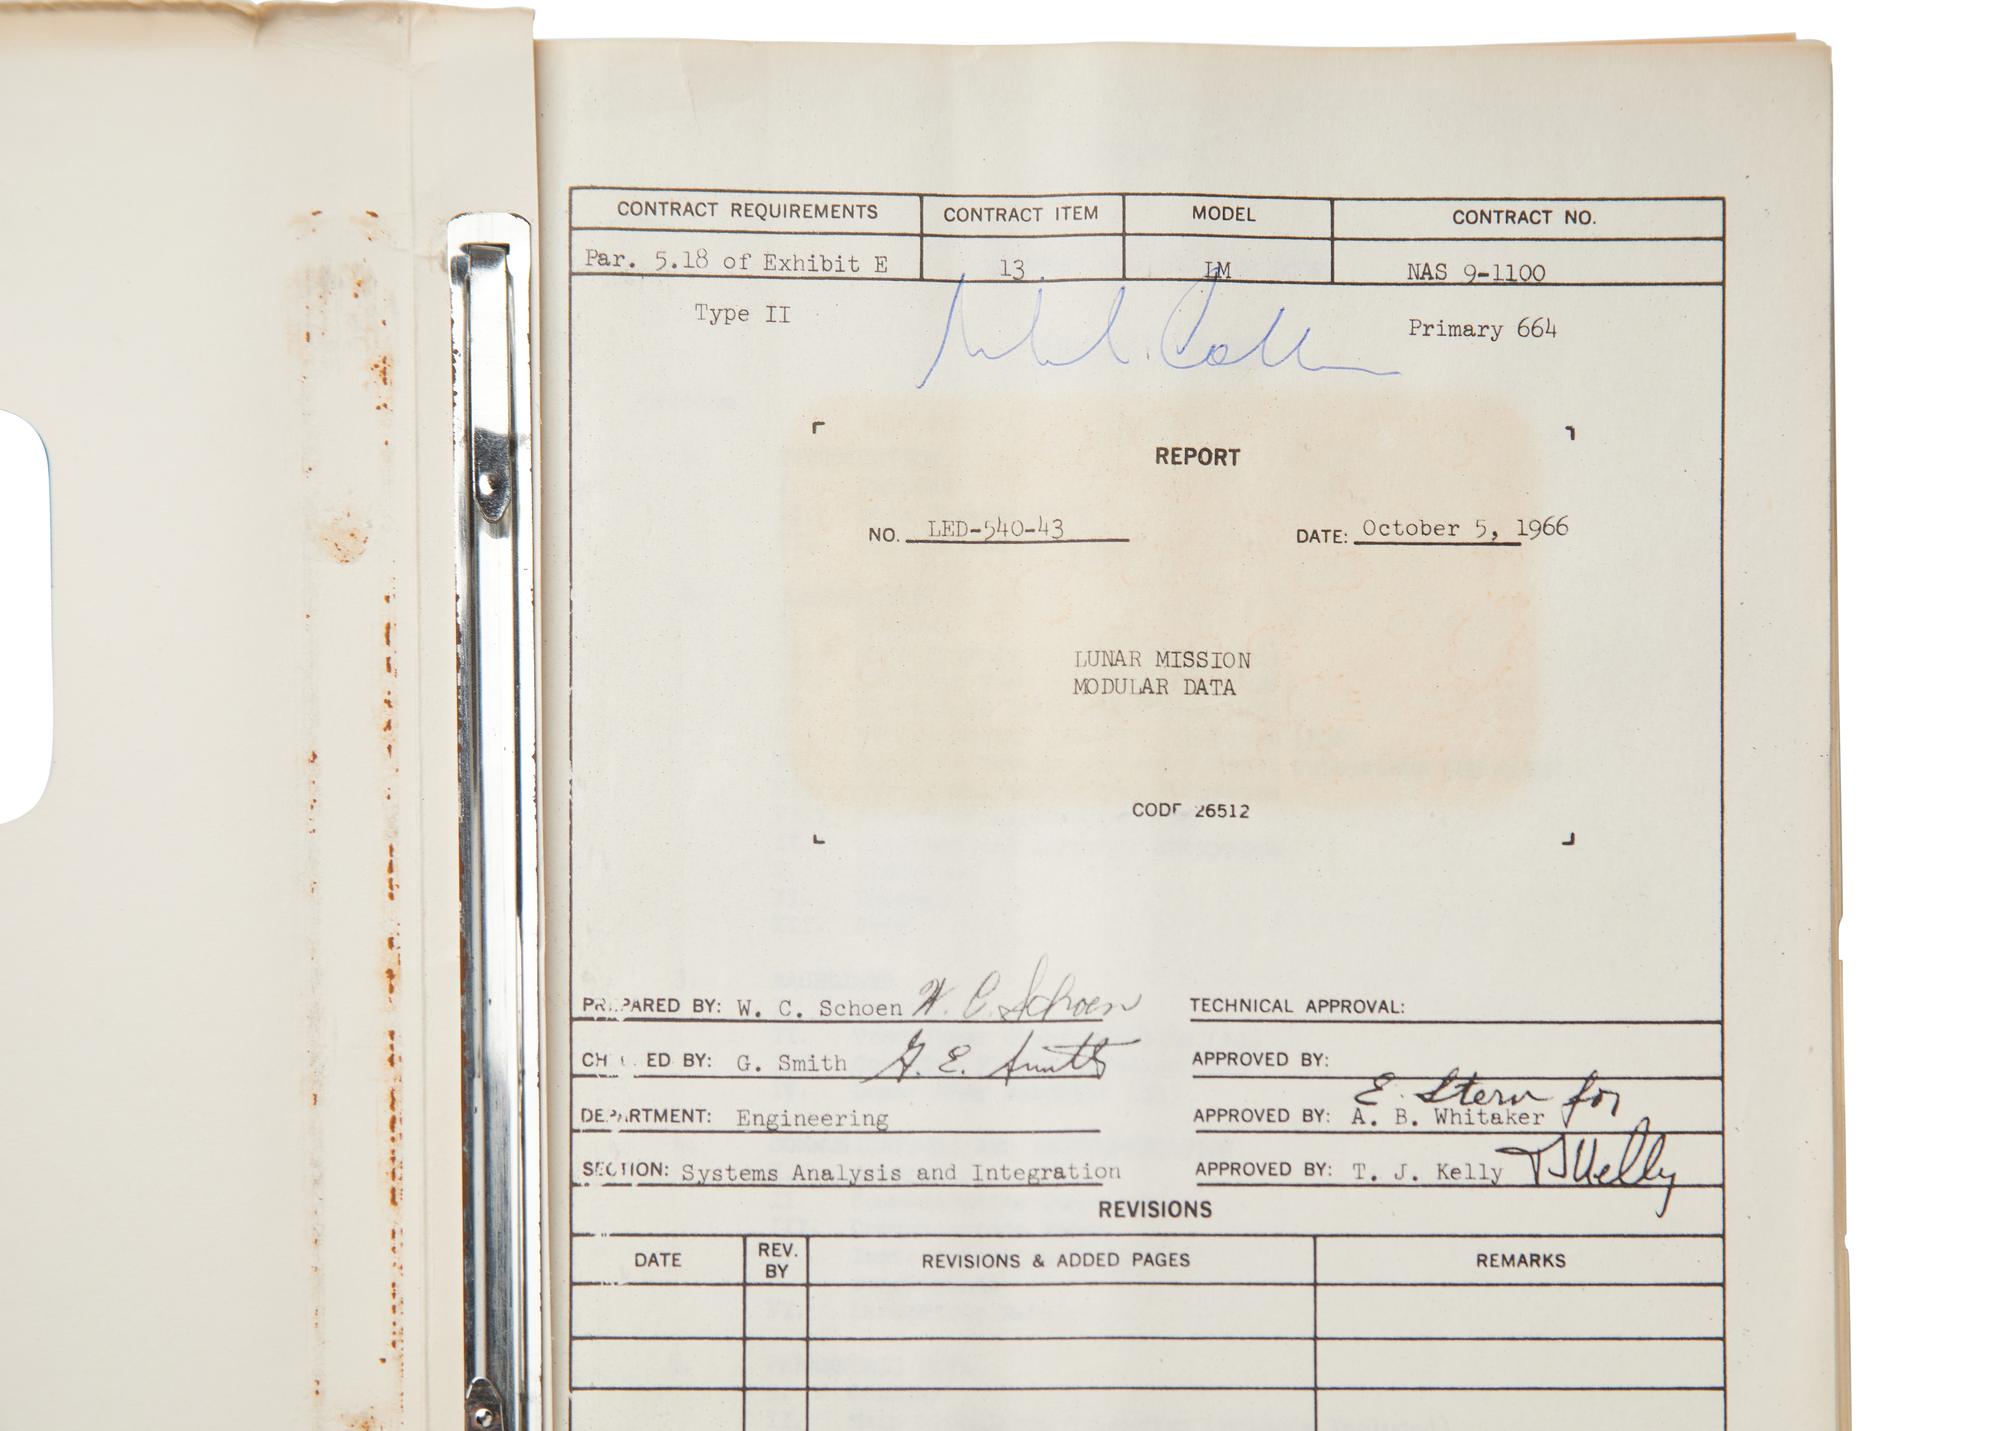 CONTRACT REQUIREMENTS CONTRACT ITEM MODEL CONTRACT NO.
Par. 5.18 of Exhibit E 13 LM NAS 9-1100
Type II Primary 664
REPORT
NO. LED-540-43 DATE: October 5, 1966
LUNAR MISSION
MODULAR DATA
CODE 26512
PREPARED BY: W. C. Schoen W. C. Schoen TECHNICAL APPROVAL:
CHECKED BY: G. Smith G. E. Smith APPROVED BY:
E. Stern for
DEPARTMENT: Engineering APPROVED BY: A. B. Whitaker
SECTION: Systems Analysis and Integration APPROVED BY: T. J. Kelly TJKelly
REVISIONS
DATE REV. BY REVISIONS & ADDED PAGES REMARKS